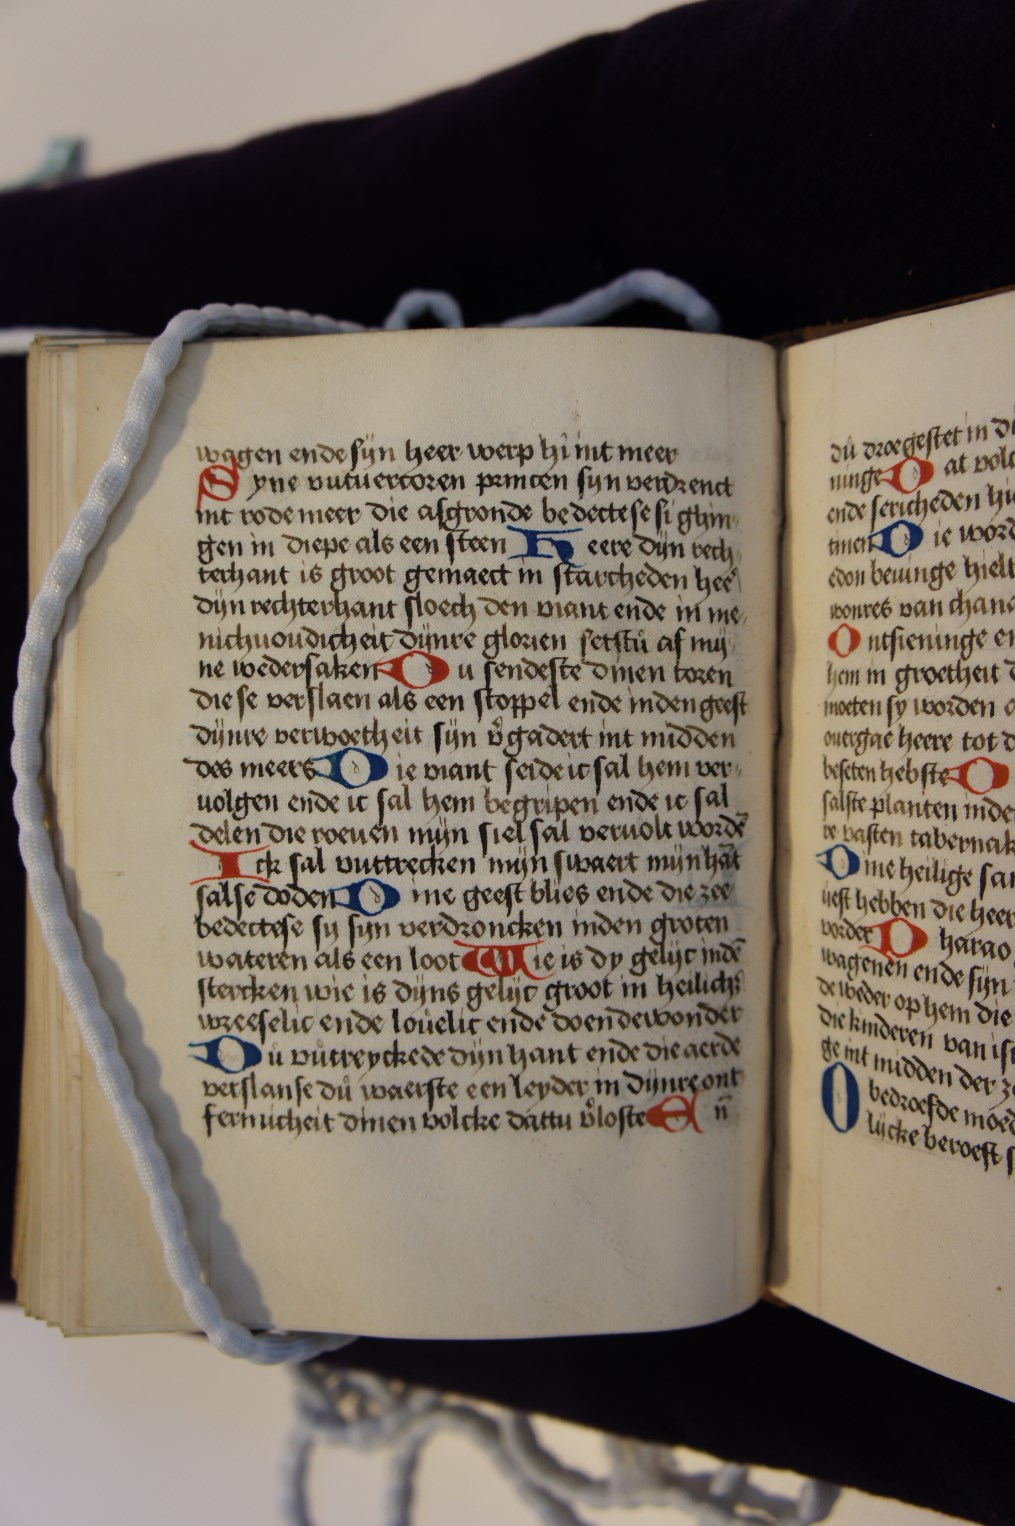 wagen ende sÿn heer werp hi int meer
Syne vutuercoren princen sÿn verdrenct
int rode meer die afgronde bedectese si ghin
gen in diepe als een steen Heere dÿn rech
terhant is groot gemaect in starcheden heē
dÿn rechterhant sloech den viant ende in me
nichuoudicheit dÿnre glorien settstu af mÿ
ne wedersaken Du sendeste dinen toren
die se verslaen als een stoppel ende inden geest
dÿnre verwoetheit sÿn v̄gadert int midden
des meers Die viant seide ic sal hem ver
uolgen ende ic sal hem begripen ende ic sal
delen die roeuen mÿn siel sal veruolt wordē
Ick sal vuttrecken mÿn swaert mÿn hāt
salse doden Dine geest blies ende die zee
bedectese sy sÿn verdroncken inden groten
wateren als een loot Wie is dy gelÿc indē
stercken wie is dÿns gelÿc groot in heilich
vreeselic ende louelic ende doende wonder
Du vutreyckede dÿn hant ende die aerde
verslanse du waerste een leyder in dÿnre ont
fermicheit dinen volcke dattu v̄loste En̄
du droegestet in
ninge Dat volc
ende
tinen Die
edon beuinge hielt
wonres van chana
Ontsieninge en
hem in groetheit
moeten sy worden
ouergae heere tot
beseten hebste D
salste planten inde
re vasten tabernak
Dine heilige san
uest hebben die heer
vorder Pharao
wagenen ende sÿn
de weder op hem die
die kinderen van isr
ge int midden der z
O bedroefde moed
lÿcke beroeft